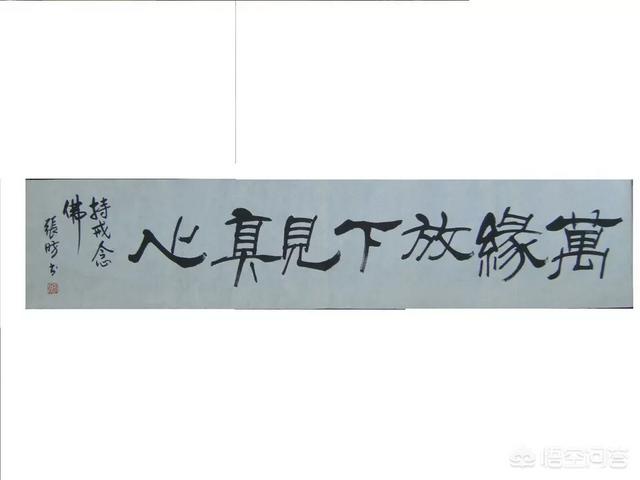 萬緣放下見真心
持戒念
佛
張昉书
悟空问答